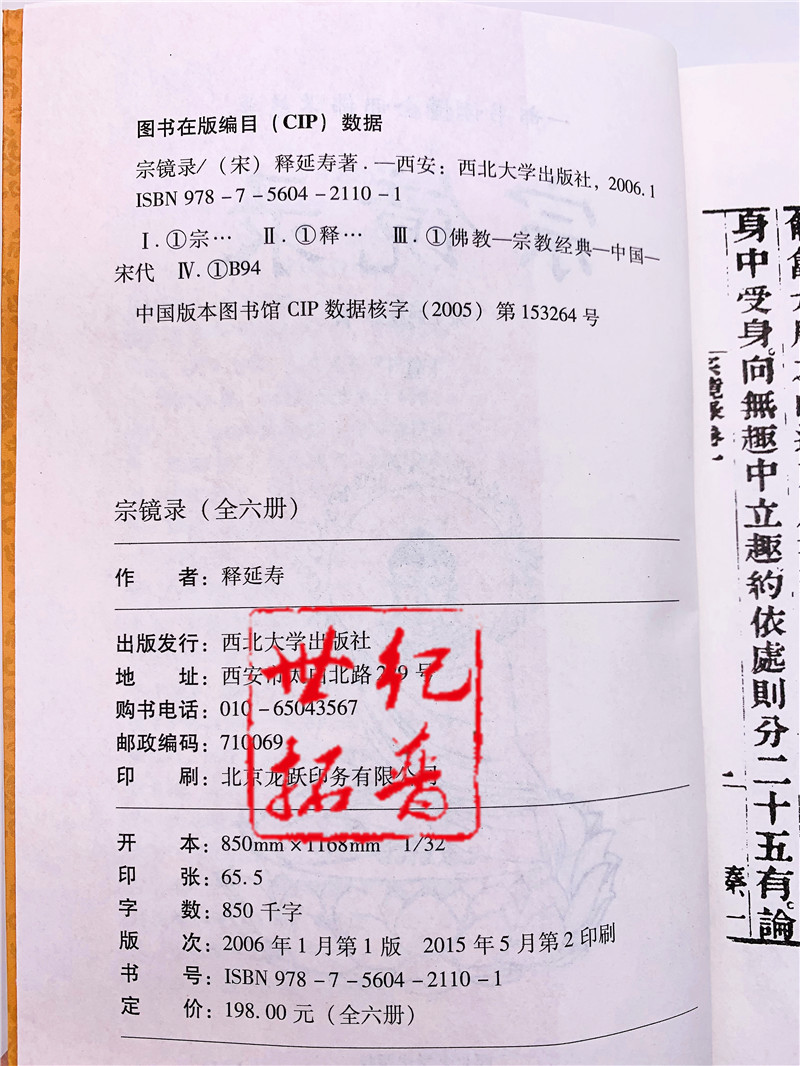 图书在版编目（CIP）数据
宗镜录/（宋）释延寿著．—西安：西北大学出版社，2006.1
ISBN 978－7－5604－2110－1
Ⅰ．①宗… Ⅱ．①释… Ⅲ．①佛教—宗教经典—中国—
宋代 Ⅳ．①B94
中国版本图书馆 CIP 数据核字（2005）第 153264 号
宗镜录（全六册）
作 者：释延寿
出版发行：西北大学出版社
地 址：西安市太白北路 229 号
购书电话：010－65043567
邮政编码：710069
印 刷：北京龙跃印务有限公司
开 本：850mm×1168mm 1/32
印 张：65.5
字 数：850 千字
版 次：2006 年 1 月第 1 版 2015 年 5 月第 2 印刷
书 号：ISBN 978－7－5604－2110－1
定 价：198.00 元（全六册）
世纪
拓普
身中受身。向無趣中立趣約依處則分二十五有。論
二